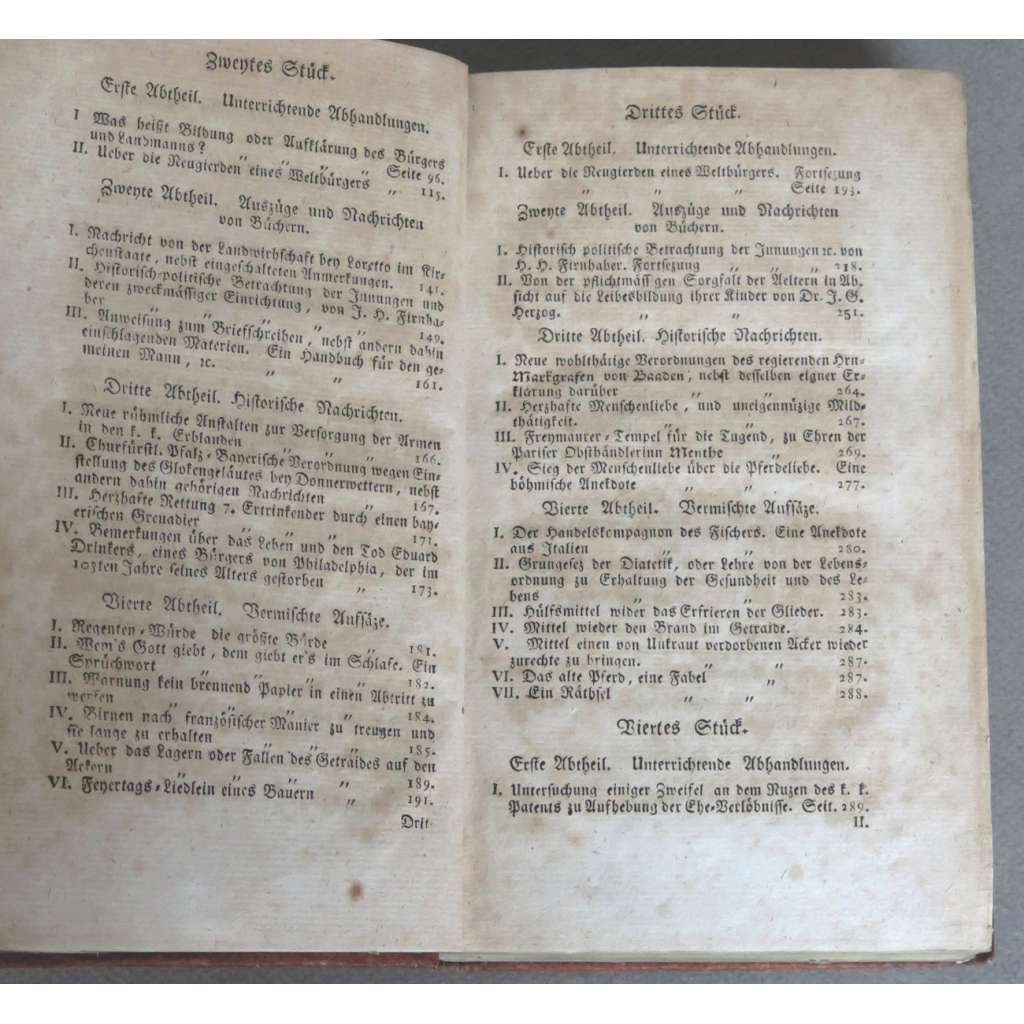 Zweytes Stück.
Erste Abtheil. Unterrichtende Abhandlungen.
I Was heißt Bildung oder Aufklärung des Bürgers
und Landmanns? „ „ „ Seite 96.
II. Ueber die Neugierden eines Weltbürgers „ 115.
Zweyte Abtheil. Auszüge und Nachrichten
von Büchern.
I. Nachricht von der Landwirthschaft bey Loretto im Kir-
chenstaate, nebst eingeschalteten Anmerkungen. 141.
II. Historisch-politische Betrachtung der Innungen und
deren zweckmässiger Einrichtung, von J. H. Firnha-
ber „ „ „ „ 149.
III. Anweisung zum Briefschreiben, nebst andern dahin
einschlagenden Materien. Ein Handbuch für den ge-
meinen Mann, ꝛc. „ „ 161.
Dritte Abtheil. Historische Nachrichten.
I. Neue rühmliche Anstalten zur Versorgung der Armen
in den k. k. Erblanden „ „ 166.
II. Churfürstl. Pfalz-Bayerische Verordnung wegen Ein-
stellung des Glokengeläutes bey Donnerwettern, nebst
andern dahin gehörigen Nachrichten „ 167.
III. Herzhafte Rettung 7. Ertrinkender durch einen bay-
erischen Grenadier „ „ 171.
IV. Bemerkungen über das Leben und den Tod Eduard
Drinkers, eines Bürgers von Philadelphia, der im
103ten Jahre seines Alters gestorben „ 173.
Vierte Abtheil. Vermischte Aufsäze.
I. Regenten-Würde die größte Bürde „ 181.
II. Wem's Gott giebt, dem giebt er's im Schlafe. Ein
Sprüchwort „ „ „ 182.
III. Warnung kein brennend Papier in einen Abtritt zu
werfen „ „ „ 184.
IV. Birnen nach französischer Manier zu treugen und
sie lange zu erhalten „ „ 185.
V. Ueber das Lagern oder Fallen des Getraides auf den
Äckern „ „ „ 189.
VI. Feyertags-Liedlein eines Bauern „ 191.
Drit-
Drittes Stück.
Erste Abtheil. Unterrichtende Abhandlungen.
I. Ueber die Neugierden eines Weltbürgers. Fortsezung
„ „ „ Seite 193.
Zweyte Abtheil. Auszüge und Nachrichten
von Büchern.
I. Historisch politische Betrachtung der Innungen ꝛc. von
H. H. Firnhaber. Fortsezung „ „ „ 218.
II. Von der pflichtmäss'gen Sorgfalt der Aeltern in Ab-
sicht auf die Leibesbildung ihrer Kinder von Dr. J. G.
Herzog. „ „ „ 251.
Dritte Abtheil. Historische Nachrichten.
I. Neue wohlthätige Verordnungen des regierenden Hrn-
Markgrafen von Baaden, nebst desselben eigner Er-
klärung darüber „ „ 264.
II. Herzhafte Menschenliebe, und uneigennüzige Mild-
thätigkeit. „ „ „ 267.
III. Freymaurer-Tempel für die Tugend, zu Ehren der
Pariser Obsthändlerinn Menthe „ 269.
IV. Sieg der Menschenliebe über die Pferdeliebe. Eine
böhmische Anekdote „ „ 277.
Vierte Abtheil. Vermischte Aufsäze.
I. Der Handelskompagnon des Fischers. Eine Anekdote
aus Italien „ „ 280.
II. Grungesez der Diatetik, oder Lehre von der Lebens-
ordnung zu Erhaltung der Gesundheit und des Le-
bens „ „ „ 283.
III. Hülfsmittel wider das Erfrieren der Glieder. 283.
IV. Mittel wieder den Brand im Getraide. 284.
V. Mittel einen von Unkraut verdorbenen Acker wieder
zurechte zu bringen. „ „ 287.
VI. Das alte Pferd, eine Fabel „ 287.
VII. Ein Räthsel „ „ 288.
Viertes Stück.
Erste Abtheil. Unterrichtende Abhandlungen.
I. Untersuchung einiger Zweifel an dem Nuzen des k. k.
Patents zu Aufhebung der Ehe-Verlöbnisse. Seit. 289.
II.